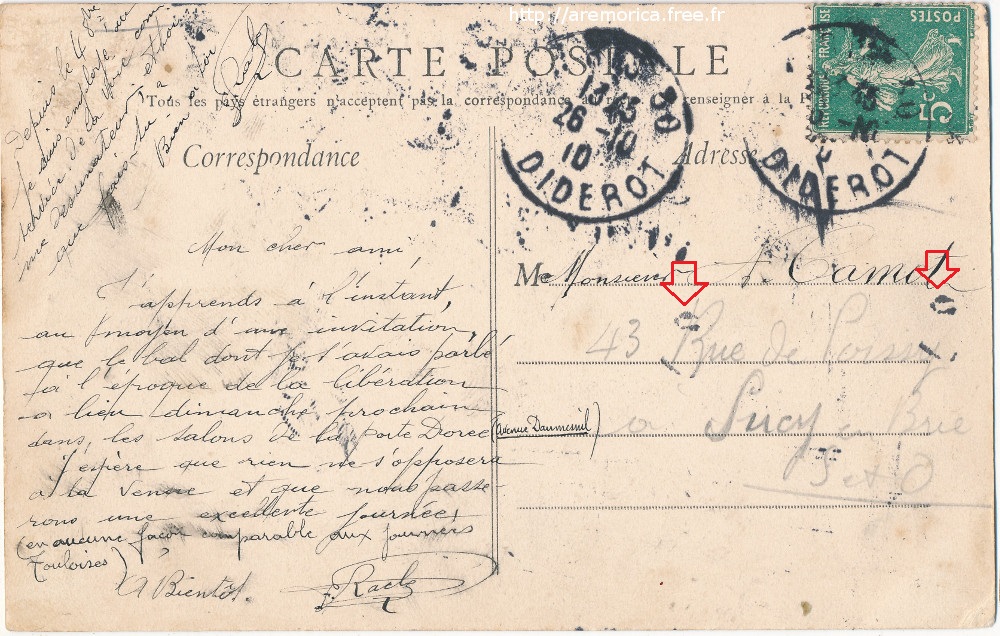 http://aremorica.free.fr
CARTE POSTALE
Tous les pays étrangers n'acceptent pas la correspondance au renseigner à la
Correspondance
Adresse
Depuis le 4 8bre
je suis employé au
service de la Voie com
me dessinateur et
que fais-tu
Bien à toi
Racle
Mon cher ami,
J'apprends à l'instant,
au moyen d'une invitation,
que le bal dont je t'avais parlé
à l'époque de la libération
a lieu dimanche prochain
dans les salons de la Porte Dorée (Avenue Daumesnil)
J'espère que rien ne s'opposera
à ta venue et que nous passe-
rons une excellente journée
(en aucune façon comparable aux journées
Touloises)
A Bientôt.
Racle
M Monsieur A. Camot
43 Rue de Poissy
à Sucy en Brie
S & O
13 45
26 -10
10
DIDEROT
DIDEROT
POSTES
REPUBLIQUE FRANÇAISE
5c